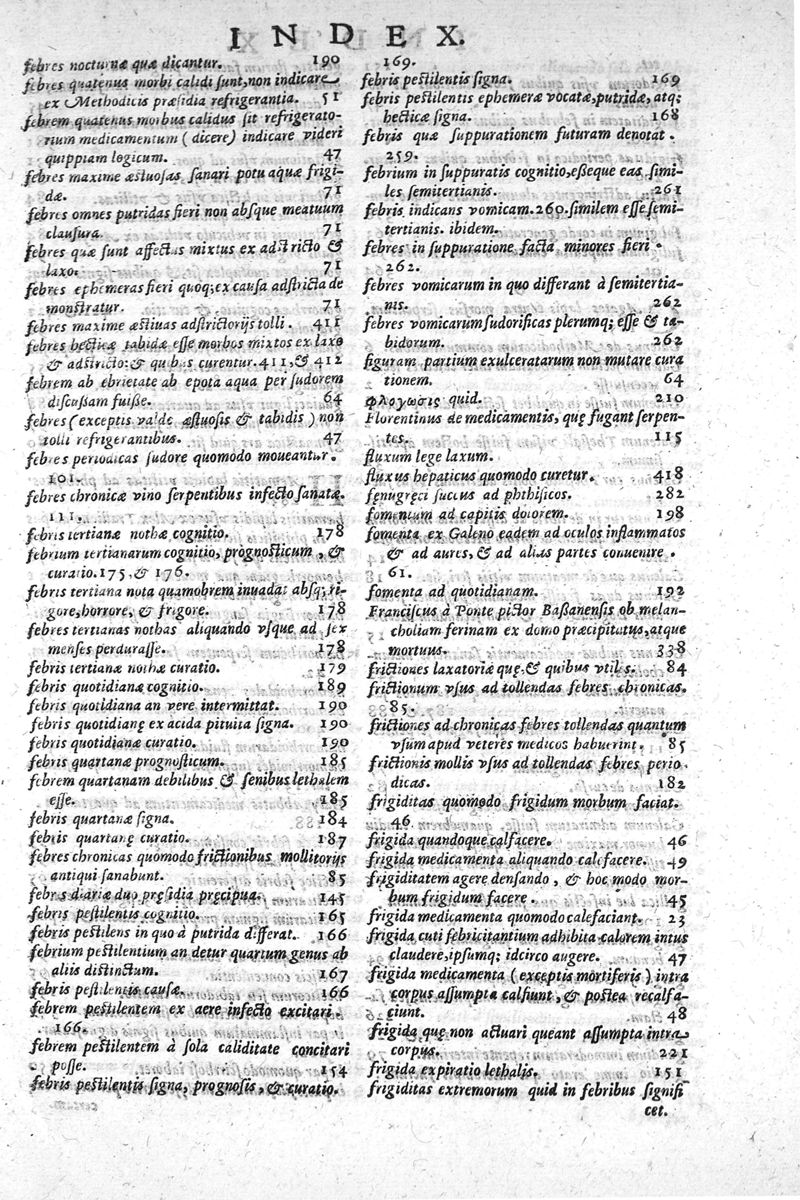 INDEX.
febres nocturnæ quæ dicantur. 190
febres quatenus morbi calidi ſunt, non indicare
ex Methodicis præſidia refrigerantia. 51
febrem quatenus morbus calidus ſit refrigerato-
rium medicamentum (dicere) indicare videri
quippiam logicum. 47
febres maxime æstuoſas ſanari potu aquæ frigi-
dæ. 71
febres omnes putridas fieri non abſque meatuum
clauſura. 71
febres quæ ſunt affectus mixtus ex adstricto &
laxo. 71
febres ephemeras fieri quoq; ex cauſa adſtricta de
monſtratur. 71
febres maxime æstiuas adſtrictorijs tolli. 411
febres hecticæ tabidæ eſſe morbos mixtos ex laxo
& adſtricto: & quibus curentur. 411, & 412
febrem ab ebrietate ab epota aqua per ſudorem
diſcuſſam fuiſſe. 64
febres (exceptis valde æſtuoſis & tabidis) non
tolli refrigerantibus. 47
febres periodicas ſudore quomodo moueantur.
101.
febres chronicæ vino ſerpentibus infecto ſanatæ.
111.
febris tertianæ nothæ cognitio. 178
febrium tertianarum cognitio, prognoſticum, &
curatio. 175, & 176.
febris tertiana nota quamobrem inuadat abſq; ri-
gore, horrore, & frigore. 178
febres tertianas nothas aliquando vſque ad ſex
menſes perduraſſe. 178
febris tertianæ nothæ curatio. 179
febris quotidianæ cognitio. 189
febris quotidiana an vere intermittat. 190
febris quotidianę ex acida pituita ſigna. 190
febris quotidianæ curatio. 190
febris quartanæ prognoſticum. 185
febrem quartanam debilibus & ſenibus lethalem
eſſe. 185
febris quartanæ ſigna. 184
febris quartanę curatio. 187
febres chronicas quomodo frictionibus mollitorijs
antiqui ſanabunt. 85
febres diariæ duo pręſidia pręcipua. 145
febris peſtilentis cognitio. 165
febris peſtilens in quo à putrida differat. 166
febrium peſtilentium an detur quartum genus ab
aliis diſtinctum. 167
febris peſtilentis cauſæ. 166
febrem peſtilentem ex aere infecto excitari.
166.
febrem peſtilentem à ſola caliditate concitari
poſſe. 154
febris peſtilentis ſigna, prognoſis, & curatio.
169.
febris peſtilentis ſigna. 169
febris peſtilentis ephemeræ vocatæ, putridæ, atq;
hecticæ ſigna. 168
febris quæ ſuppurationem futuram denotat.
259.
febrium in ſuppuratis cognitio, eßeque eas ſimi-
les ſemitertianis. 261
febris indicans vomicam. 260. ſimilem eſſe ſemi-
tertianis. ibidem.
febres in ſuppuratione facta minores fieri.
262.
febres vomicarum in quo differant à ſemitertia-
nis. 262
febres vomicarum ſudorificas plerumq; eſſe & ta-
bidorum. 262
figuram partium exulceratarum non mutare cura
tionem. 64
φλογωσις quid. 210
Florentinus de medicamentis, quę fugant ſerpen-
tes. 115
fluxum lege laxum.
fluxus hepaticus quomodo curetur. 418
fęnugręci ſuccus ad phthiſicos. 282
fomentum ad capitis dolorem. 198
fomenta ex Galeno eadem ad oculos inflammatos
& ad aures, & ad alias partes conuenire.
61.
fomenta ad quotidianam. 192
Franciſcus à Ponte pictor Baßanenſis ob melan-
choliam ferinam ex domo præcipitatus, atque
mortuus. 338
frictiones laxatoriæ quę, & quibus vtiles. 84
frictionum vſus ad tollendas febres chronicas.
85.
frictiones ad chronicas febres tollendas quantum
vſum apud veteres medicos habuerint. 85
frictionis mollis vſus ad tollendas febres perio
dicas. 182
frigiditas quomodo frigidum morbum faciat.
46
frigida quandoque calfacere. 46
frigida medicamenta aliquando calefacere. 49
frigiditatem agere denſando, & hoc modo mor-
bum frigidum facere. 45
frigida medicamenta quomodo calefaciant. 23
frigida cuti febricitantium adhibita calorem intus
claudere, ipſumq; idcirco augere. 47
frigida medicamenta (exceptis mortiferis) intra
corpus aſſumpta calfiunt, & poſtea recalfa-
ciunt. 48
frigida quę non actuari queant aſſumpta intra
corpus. 221
frigida expiratio lethalis. 151
frigiditas extremorum quid in febribus ſignifi
cet.